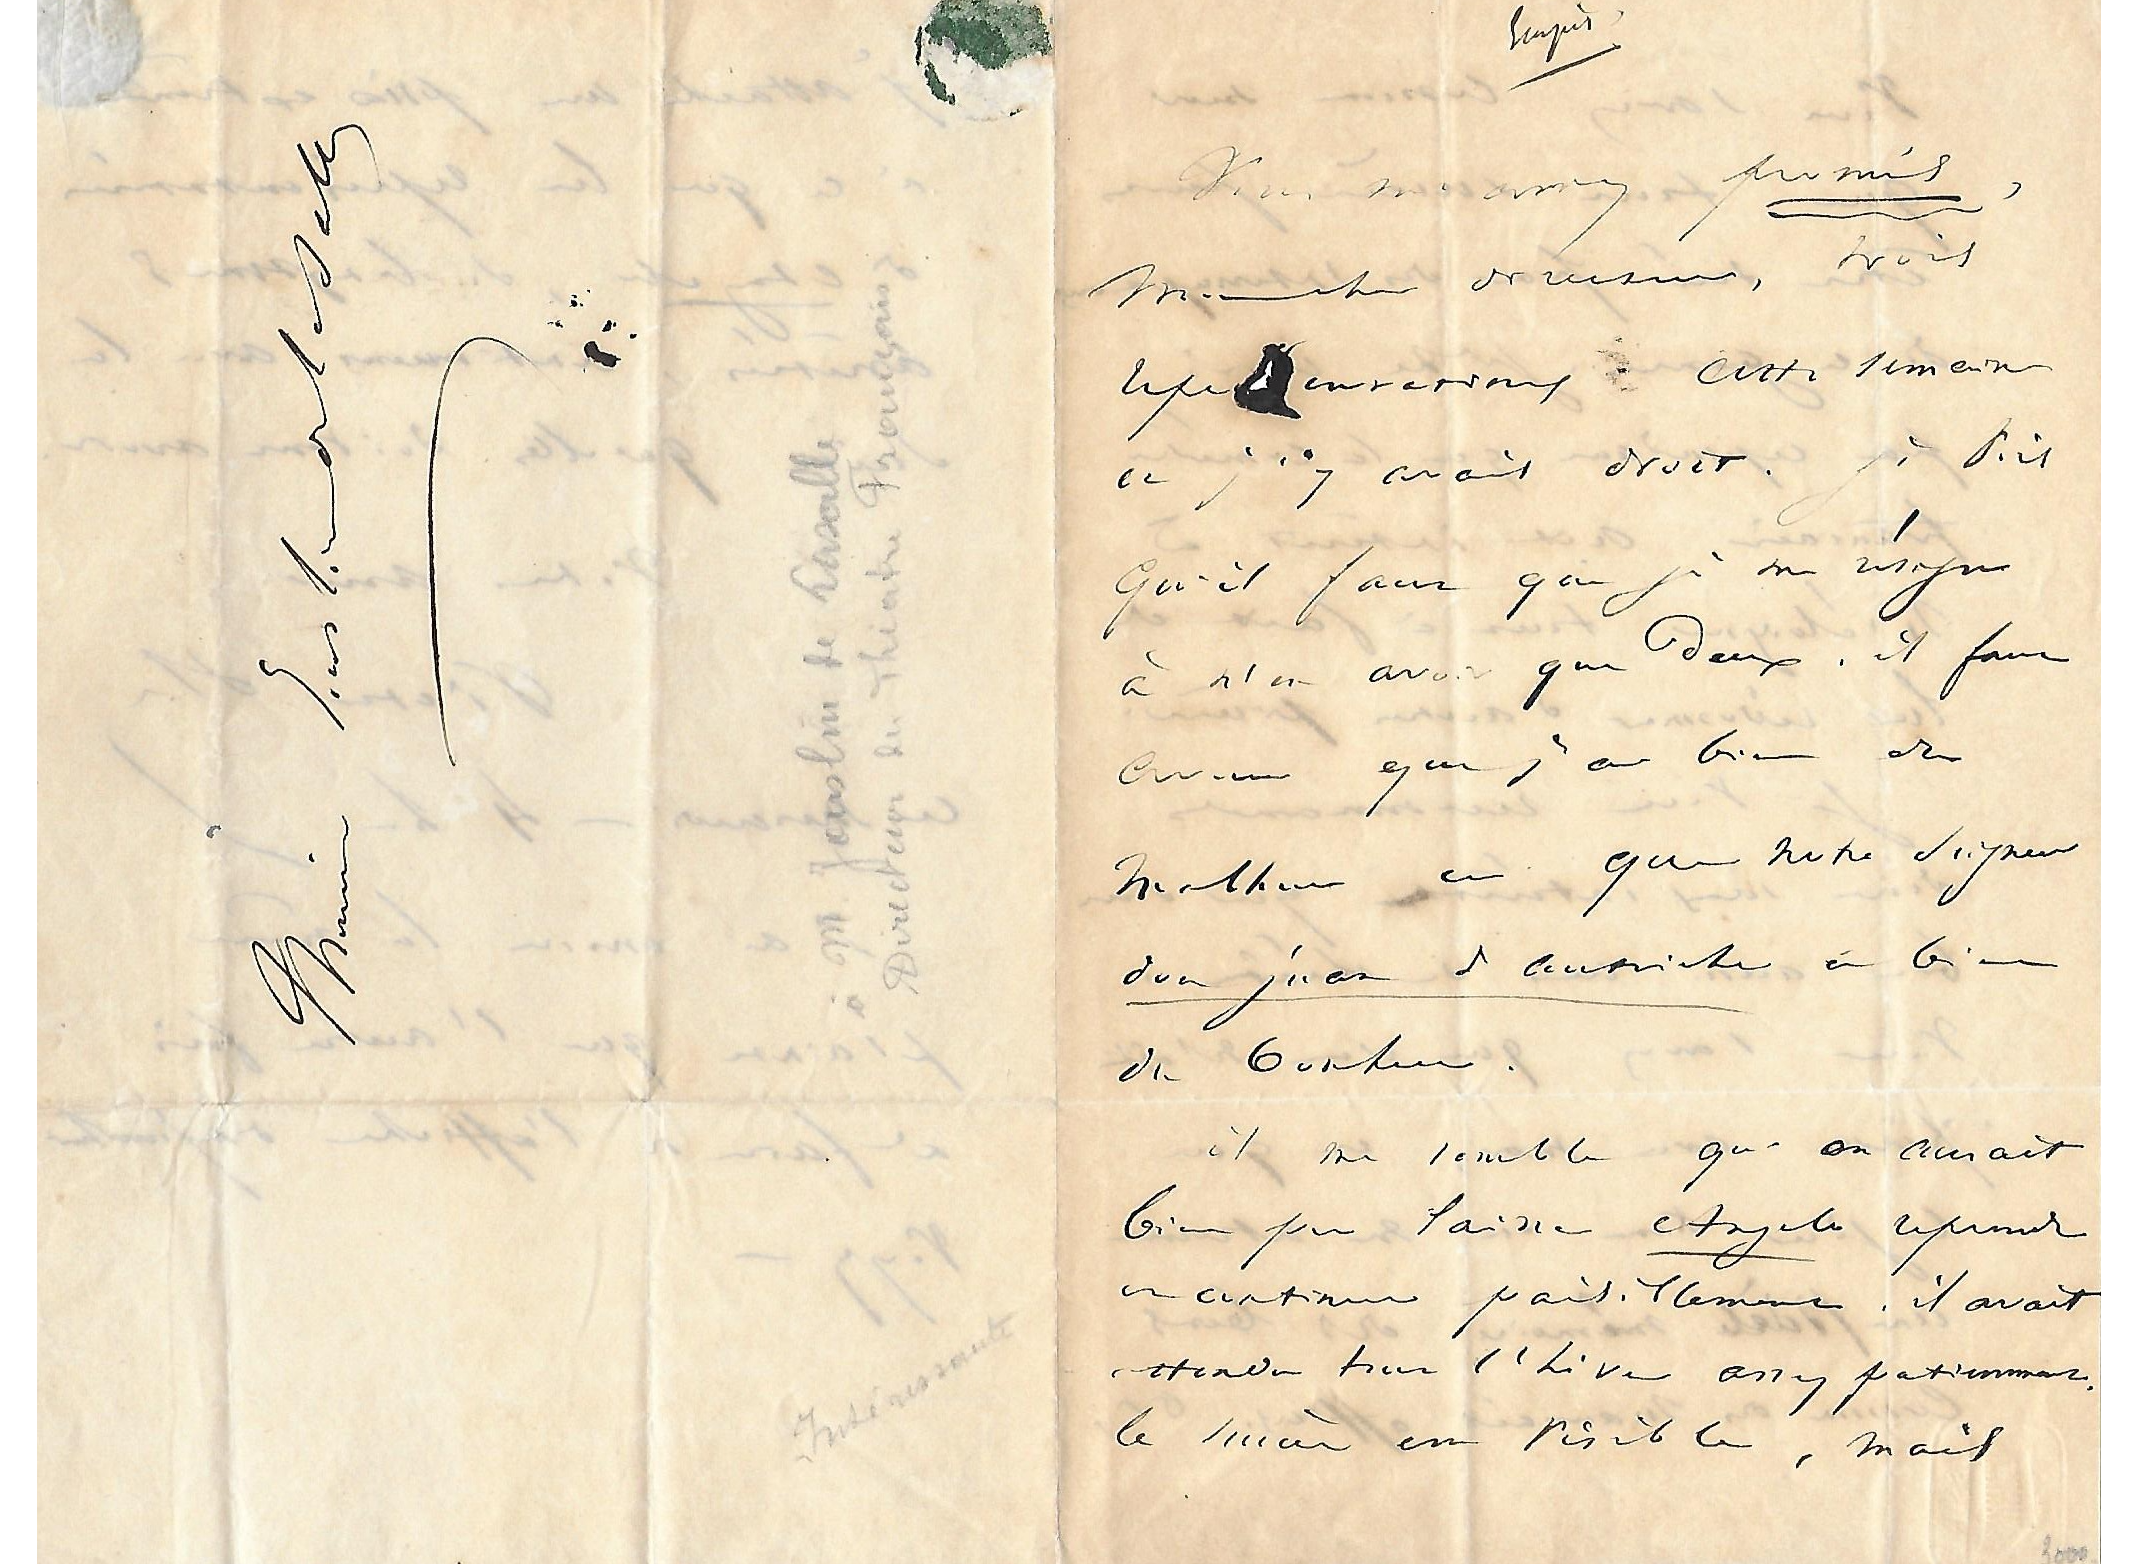 Monsieur Jouslin de la Salle
à M. Jouslin de Lasalle
Directeur du Théâtre Français
Intéressante
Vous m'aviez promis,
Mon cher directeur, trois
représentations cette semaine
et j'y avais droit. je vois
Qu'il faut que je me résigne
à n'en avoir que Deux. il faut
avouer que j'ai bien du
Malheur et que notre seigneur
don juan d'autriche a bien
du bonheur.
il me semble qu'on aurait
bien pu laisser Angelo reprendre
et continuer paisiblement. il avait
attendu tout l'hiver assez patiemment.
le succès est visible, mais
2000